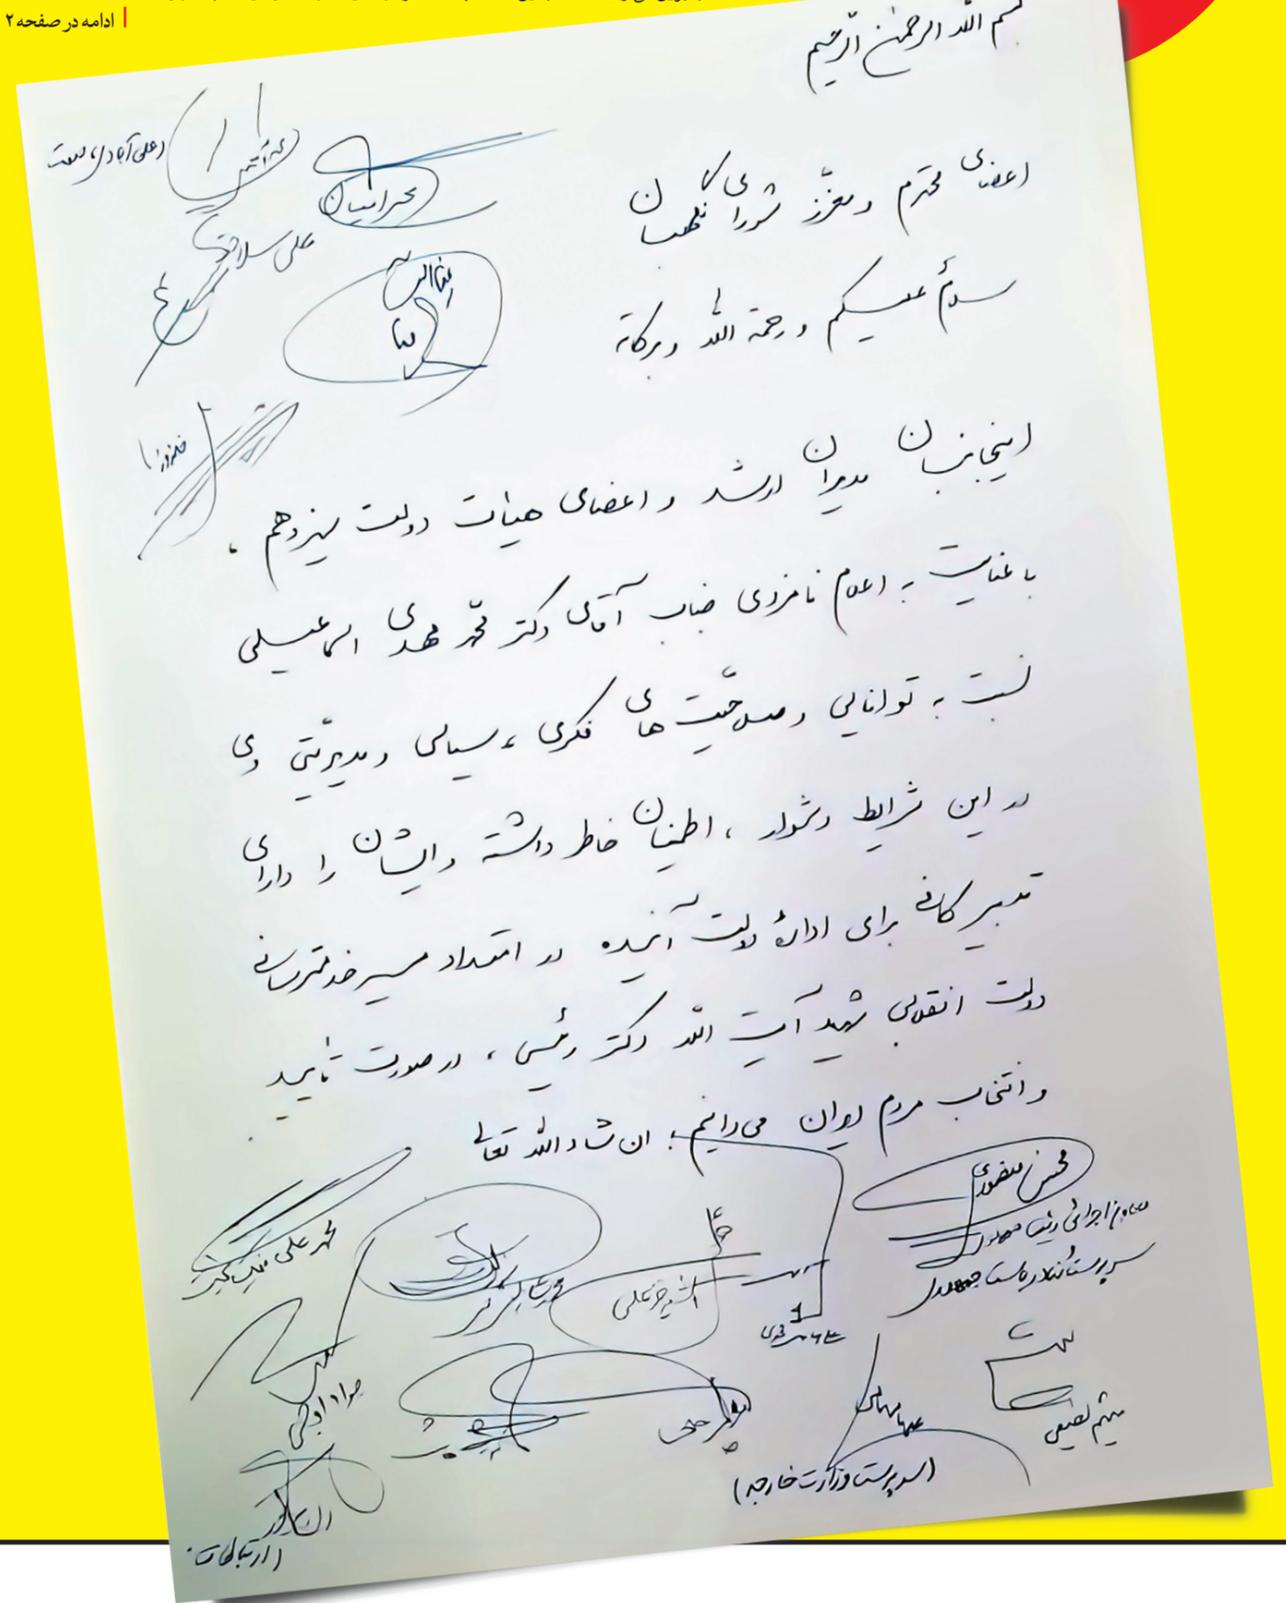 ادامه در صفحه ۲
بسم الله الرحمن الرحیم
اعضای محترم و معزز شورای نگهبان
سلامٌ علیکم و رحمة الله و برکاته
اینجانبان مدیران ارشد و اعضای هیات دولت سیزدهم،
با عنایت به اعلام نامزدی جناب آقای دکتر محمّد مهدی اسماعیلی
نسبت به توانایی و صلاحیّت های فکری، سیاسی و مدیریّتی وی
در این شرایط دشوار، اطمینان خاطر داشته و ایشان را دارای
تدبیر کافی برای ادارهٔ دولت آینده در امتداد مسیر خدمترسانی
دولت انقلابی شهید آیت الله دکتر رئیسی، در صورت تأیید
و انتخاب مردم ایران می‌دانیم؛ ان شاء الله تعالی
علی آبادی، صمت
محرابیان
علی سلاجقه
خاندوزی
محسن منصوری
معاون اجرائی رئیس جمهور
سرپرست نهاد ریاست جمهوری
محمد علی نیکبخت
میثم لطیفی
(سرپرست وزارت خارجه)
زارع پور
(ارتباطات)